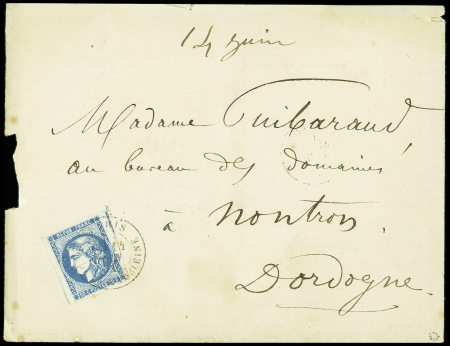 14 juin
Madame Guibaraud,
au bureau des domaines
à Nontron
Dordogne
REPUB FRANC